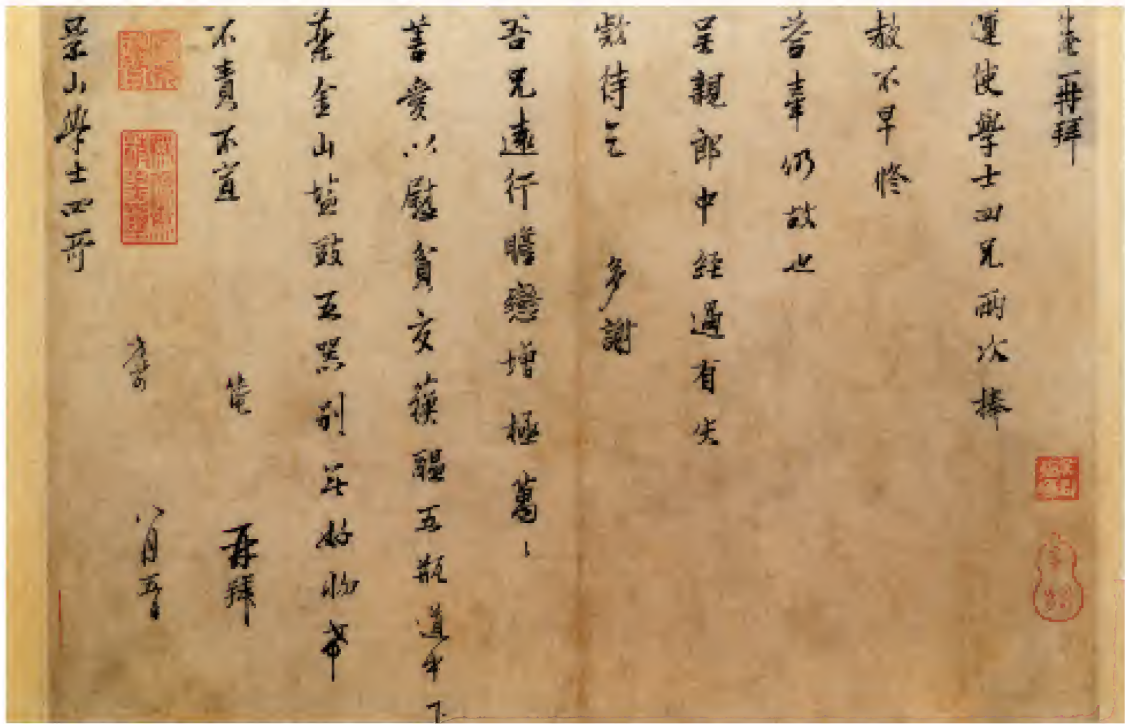 仲淹再拜
運使學士四兄兩次捧
教不早修
答牽仍故也
吴親郎中經過有失
欵待乞 多謝
吾兄遠行瞻戀增極萬〻
善愛以慰貧交蘓醖五瓶道中下
藥金山鹽豉五器別無好物希
不責不宣 仲淹 再拜
八月五日
景山學士四哥